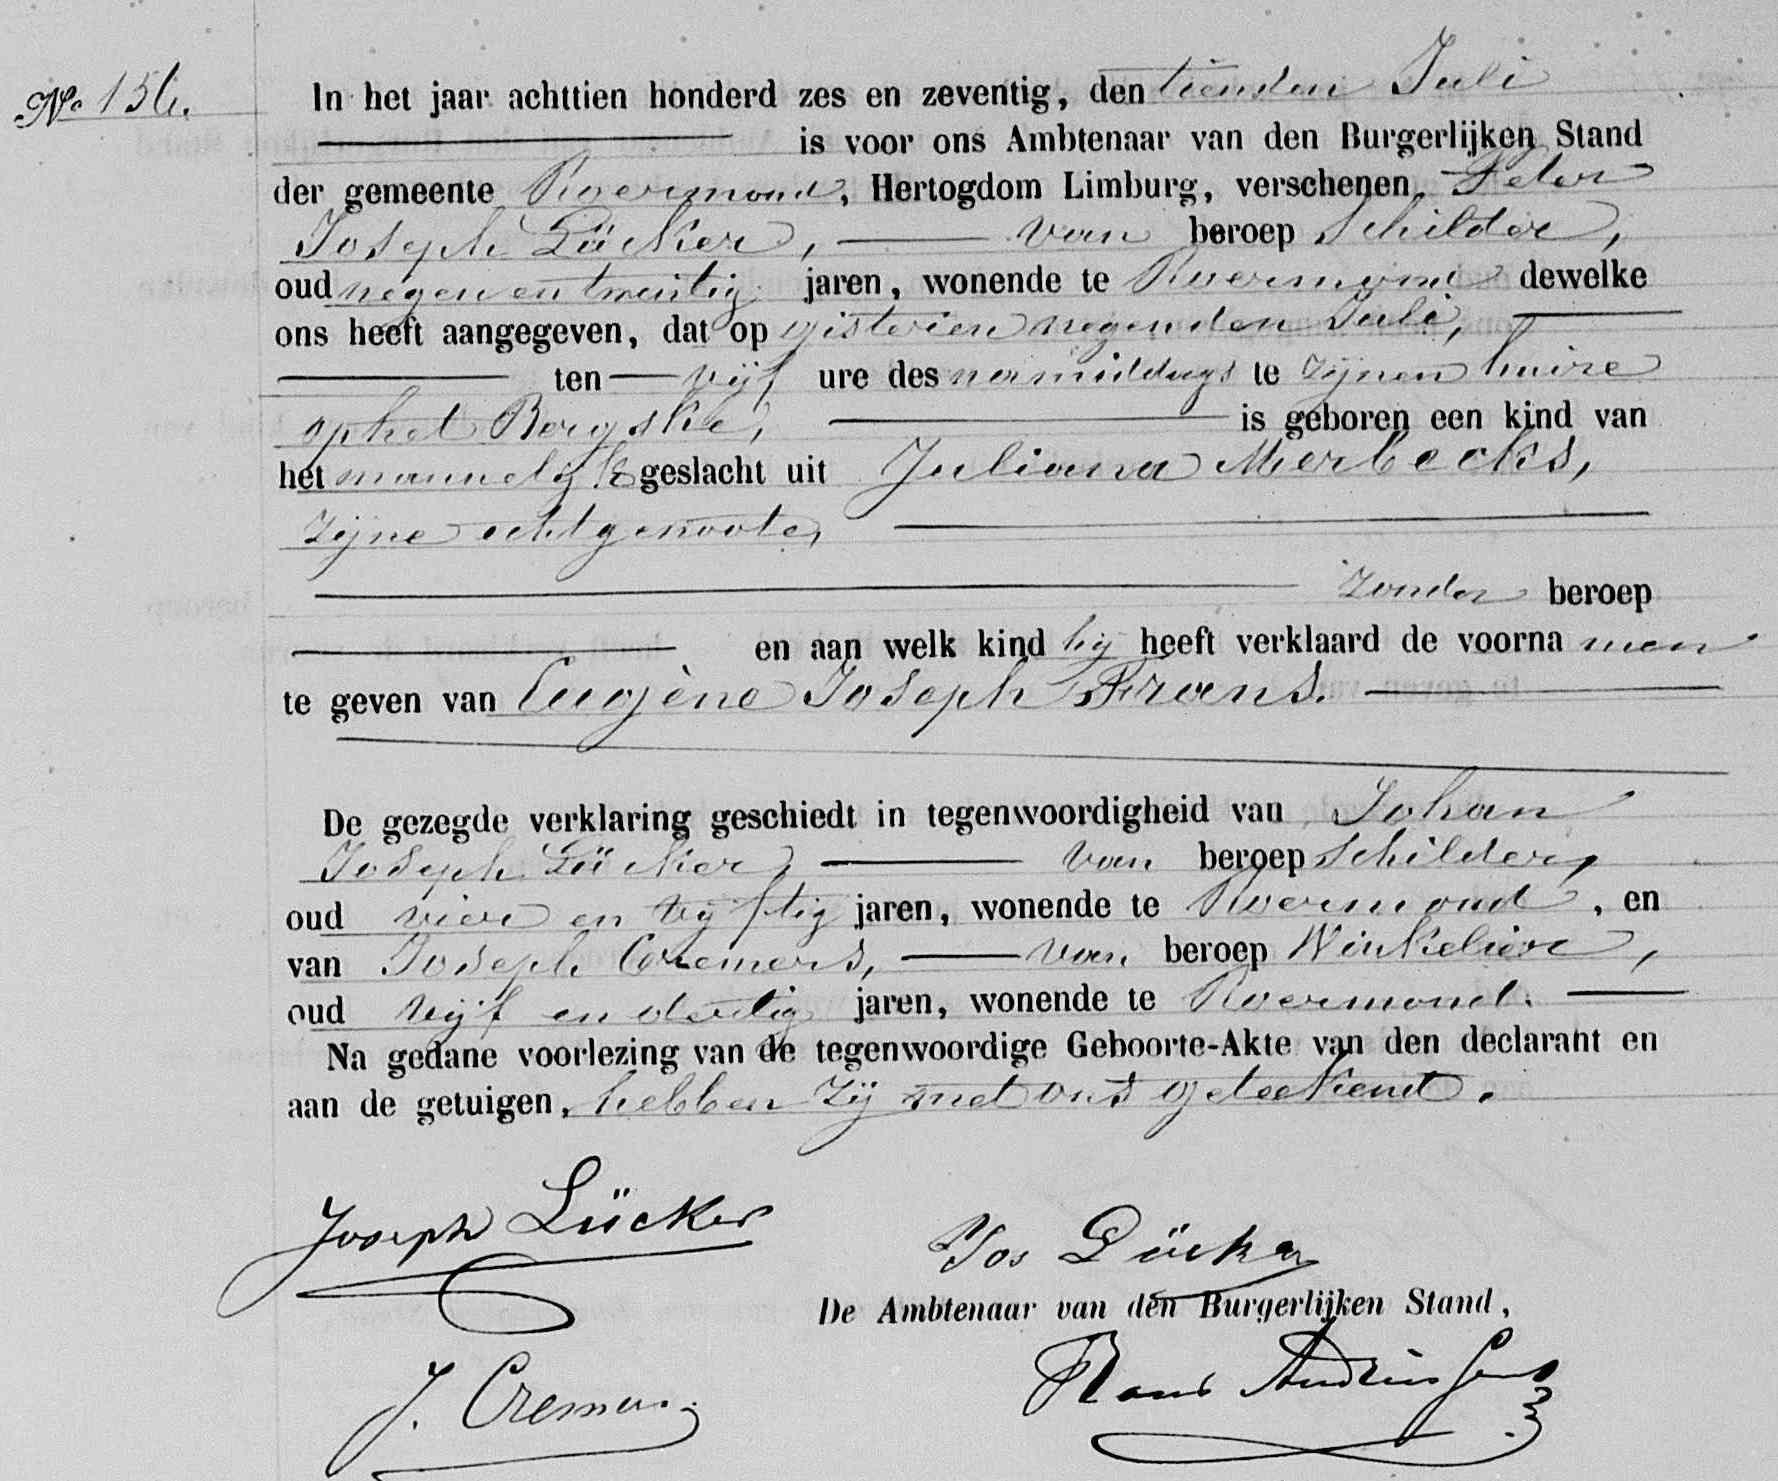 No 156.
In het jaar achttien honderd zes en zeventig, den tienden Juli
is voor ons Ambtenaar van den Burgerlijken Stand
der gemeente Roermond, Hertogdom Limburg, verschenen Peter
Joseph Lücker, van beroep Schilder,
oud negen en twintig jaren, wonende te Roermond dewelke
ons heeft aangegeven, dat op gisteren negenden Juli,
ten vijf ure des namiddags te zijnen huize
op het Bergske, is geboren een kind van
het mannelijk geslacht uit Juliana Merbecks,
zijne echtgenoote,
zonder beroep
en aan welk kind hij heeft verklaard de voorna men
te geven van Eugène Joseph Frans.
De gezegde verklaring geschiedt in tegenwoordigheid van Johan
Joseph Lücker, van beroep Schilder,
oud vier en vijftig jaren, wonende te Roermond, en
van Joseph Cremers, van beroep Winkelier,
oud vijf en dertig jaren, wonende te Roermond.
Na gedane voorlezing van de tegenwoordige Geboorte-Akte van den declarant en
aan de getuigen, hebben zij met ons geteekend.
Joseph Lücker
Jos Lücker
De Ambtenaar van den Burgerlijken Stand,
J. Cremers